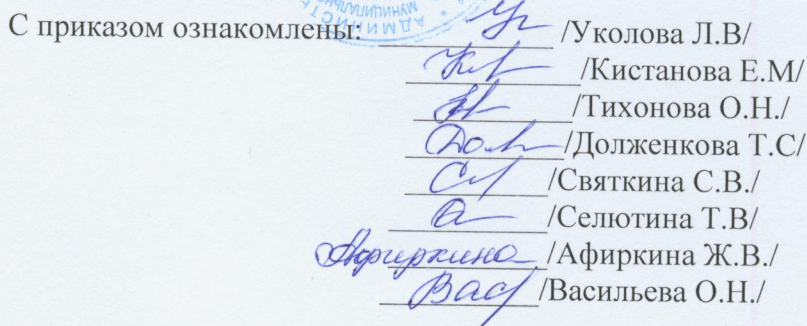 С приказом ознакомлены: /Уколова Л.В/
/Кистанова Е.М/
/Тихонова О.Н./
/Долженкова Т.С/
/Святкина С.В./
/Селютина Т.В/
Афиркина /Афиркина Ж.В./
Вас /Васильева О.Н./